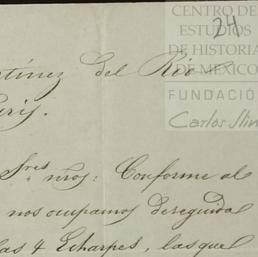 CENTRO DE
ESTUDIOS
DE HISTORIA
DE MEXICO
FUNDACIÓN
Carlos Slim
24
rtinez del Rio
eris.
Sres nros: Conforme al
nos ocupamos deseguida
las 4 Echarpes, las que